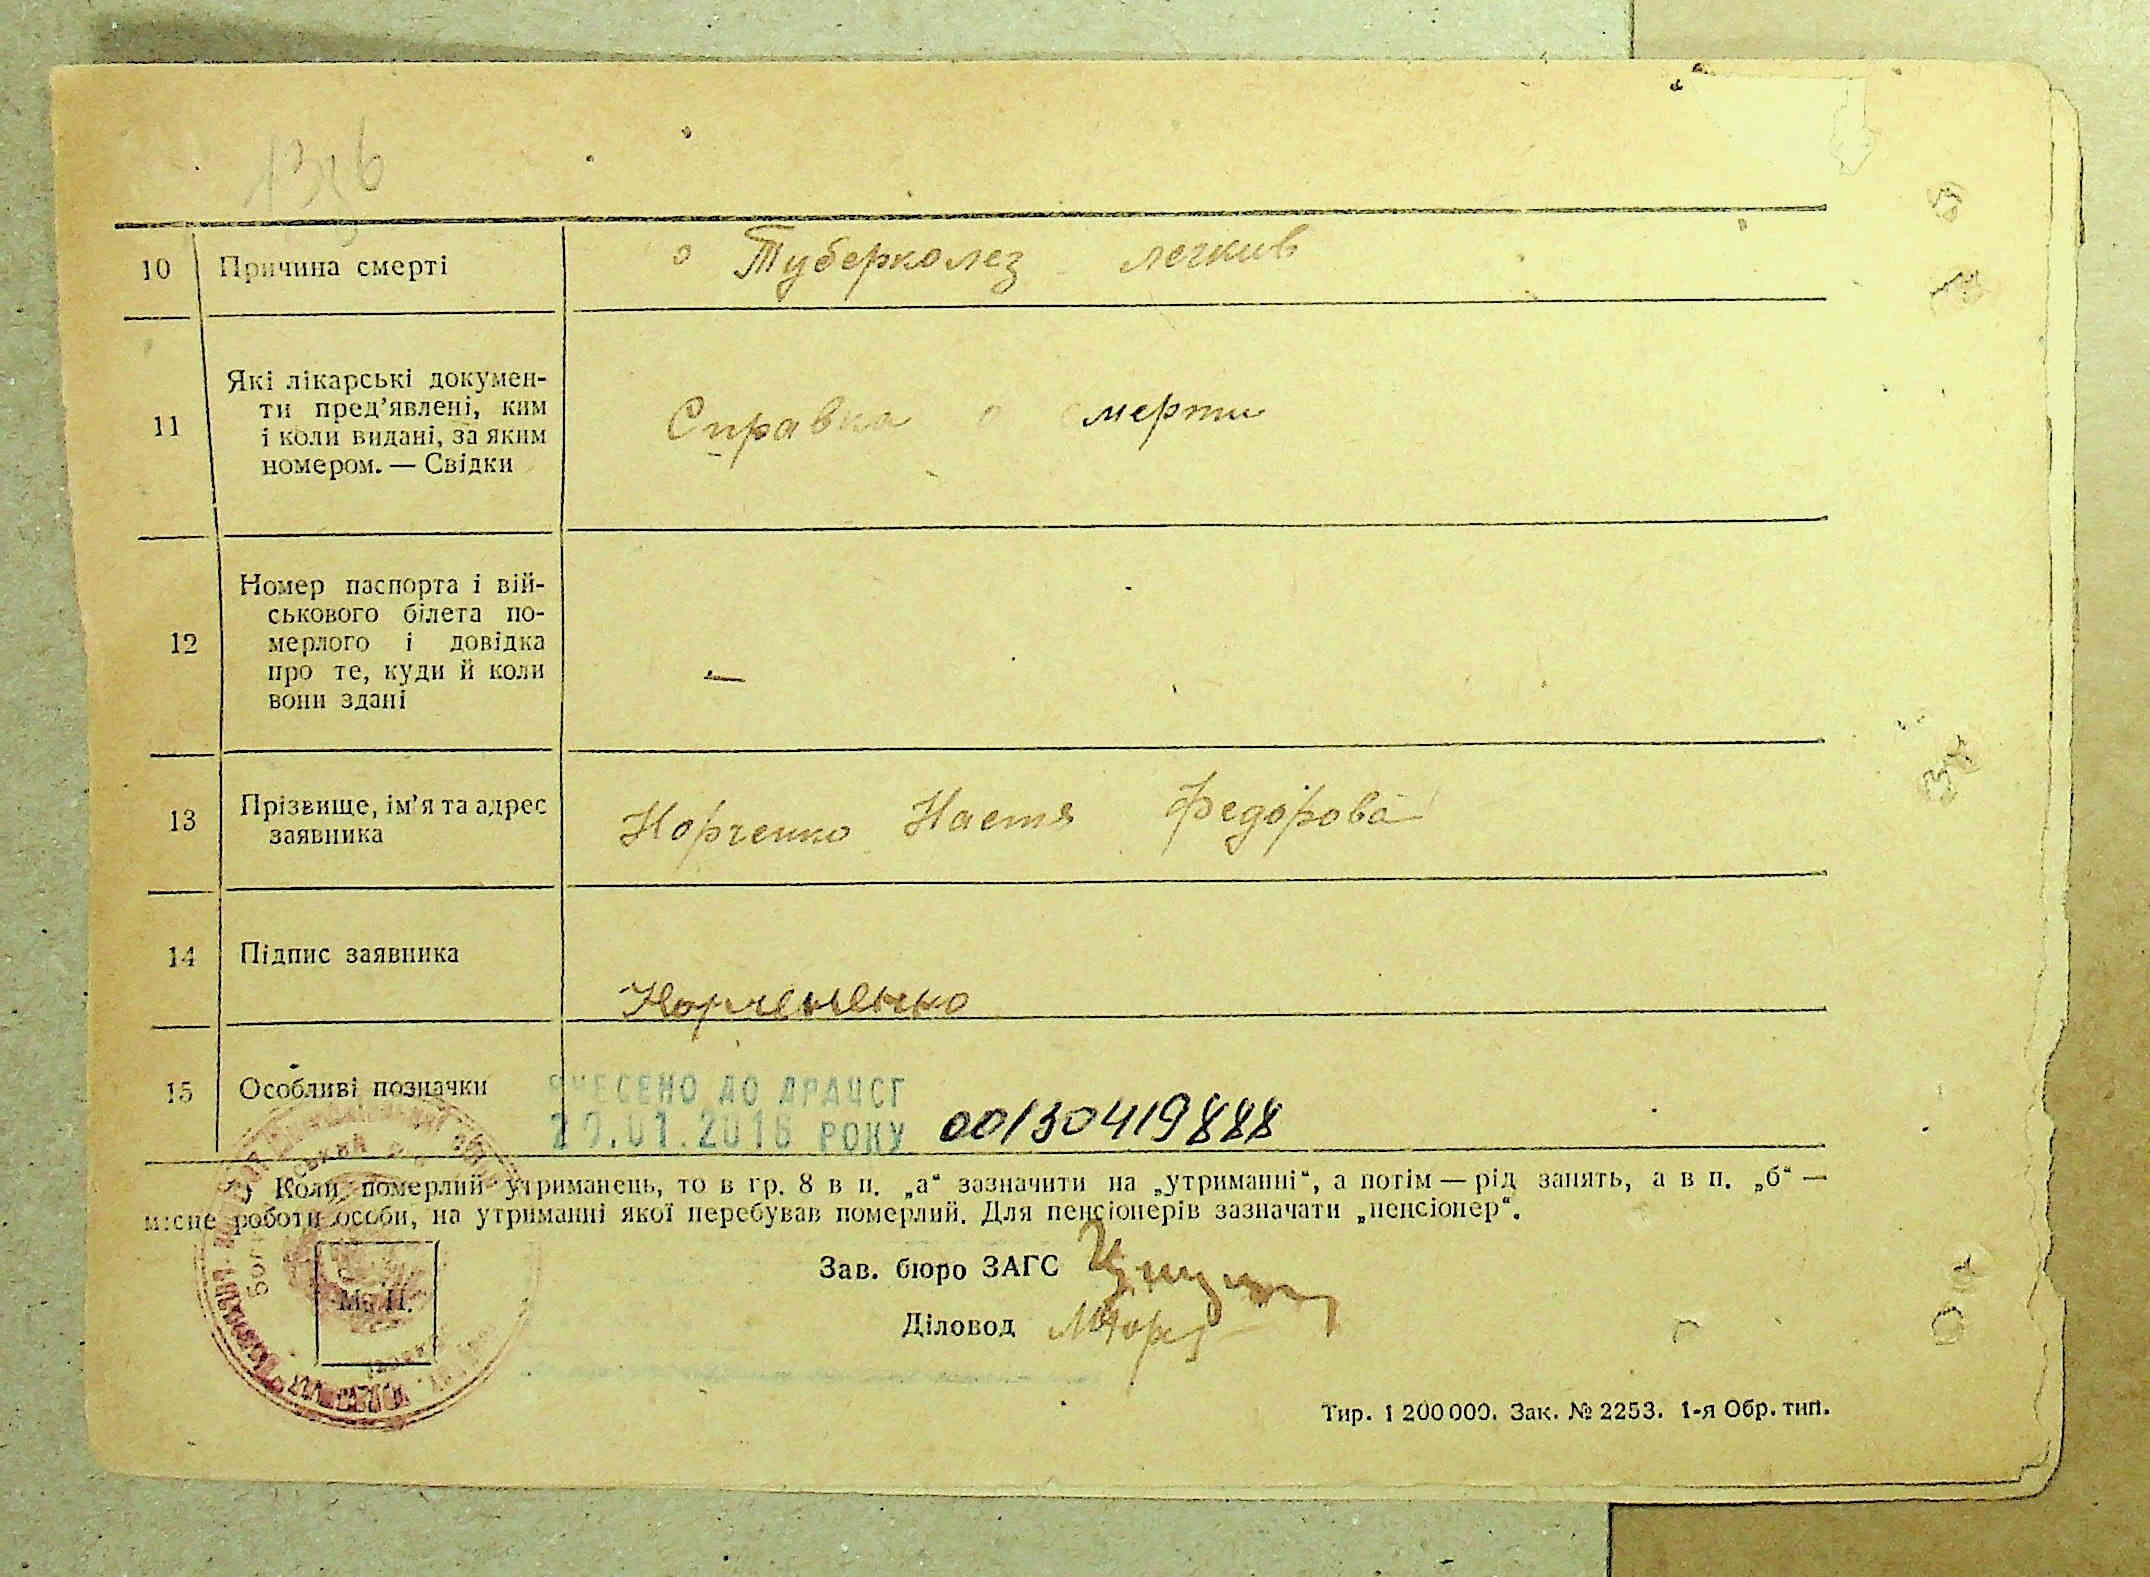 10 Причина смерті Туберколез легких
11 Які лікарські докумен-
ти пред’явлені, ким
і коли видані, за яким
номером. — Свідки
Справка о смерти
12 Номер паспорта і вій-
ськового білета по-
мерлого і довідка
про те, куди й коли
вони здані
—
13 Прізвище, ім’я та адрес
заявника
Настя Федорова
14 Підпис заявника
15 Особливі позначки
ВНЕСЕНО ДО ДРАЦСГ
РОКУ 00130419888
*) Коли померлий утриманець, то в гр. 8 в п. „а“ зазначити на „утриманні“, а потім — рід занять, а в п. „б“ —
місце роботи особи, на утриманні якої перебував померлий. Для пенсіонерів зазначати „пенсіонер“.
Зав. бюро ЗАГС
М. П.
Діловод
Тир. 1 200 000. Зак. № 2253. 1-я Обр. тип.